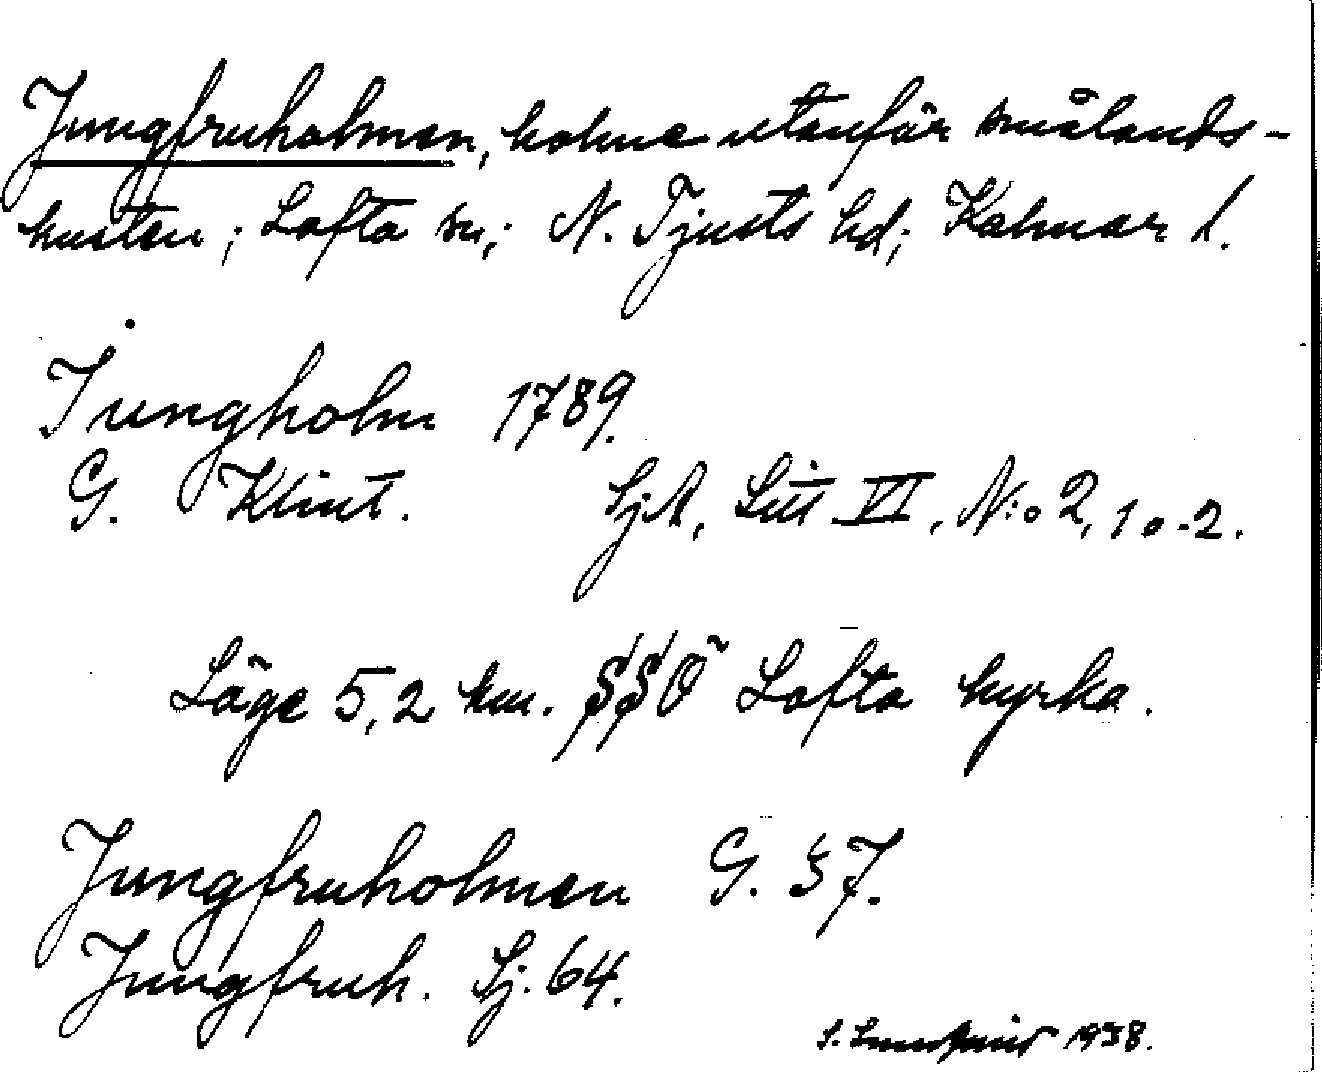 Jungfruholmen, holme utanför smålands-
kusten; Lofta sn; N. Tjusts hd; Kalmar l.
Jungholm 1789.
G. Klint. SjA, Litt VI, N:o 2, 1 o. 2.
Läge 5,2 km. SSÖ Lofta kyrka.
Jungfruholmen G. 57.
Jungfruh. Sj. 64.
S. 1938.